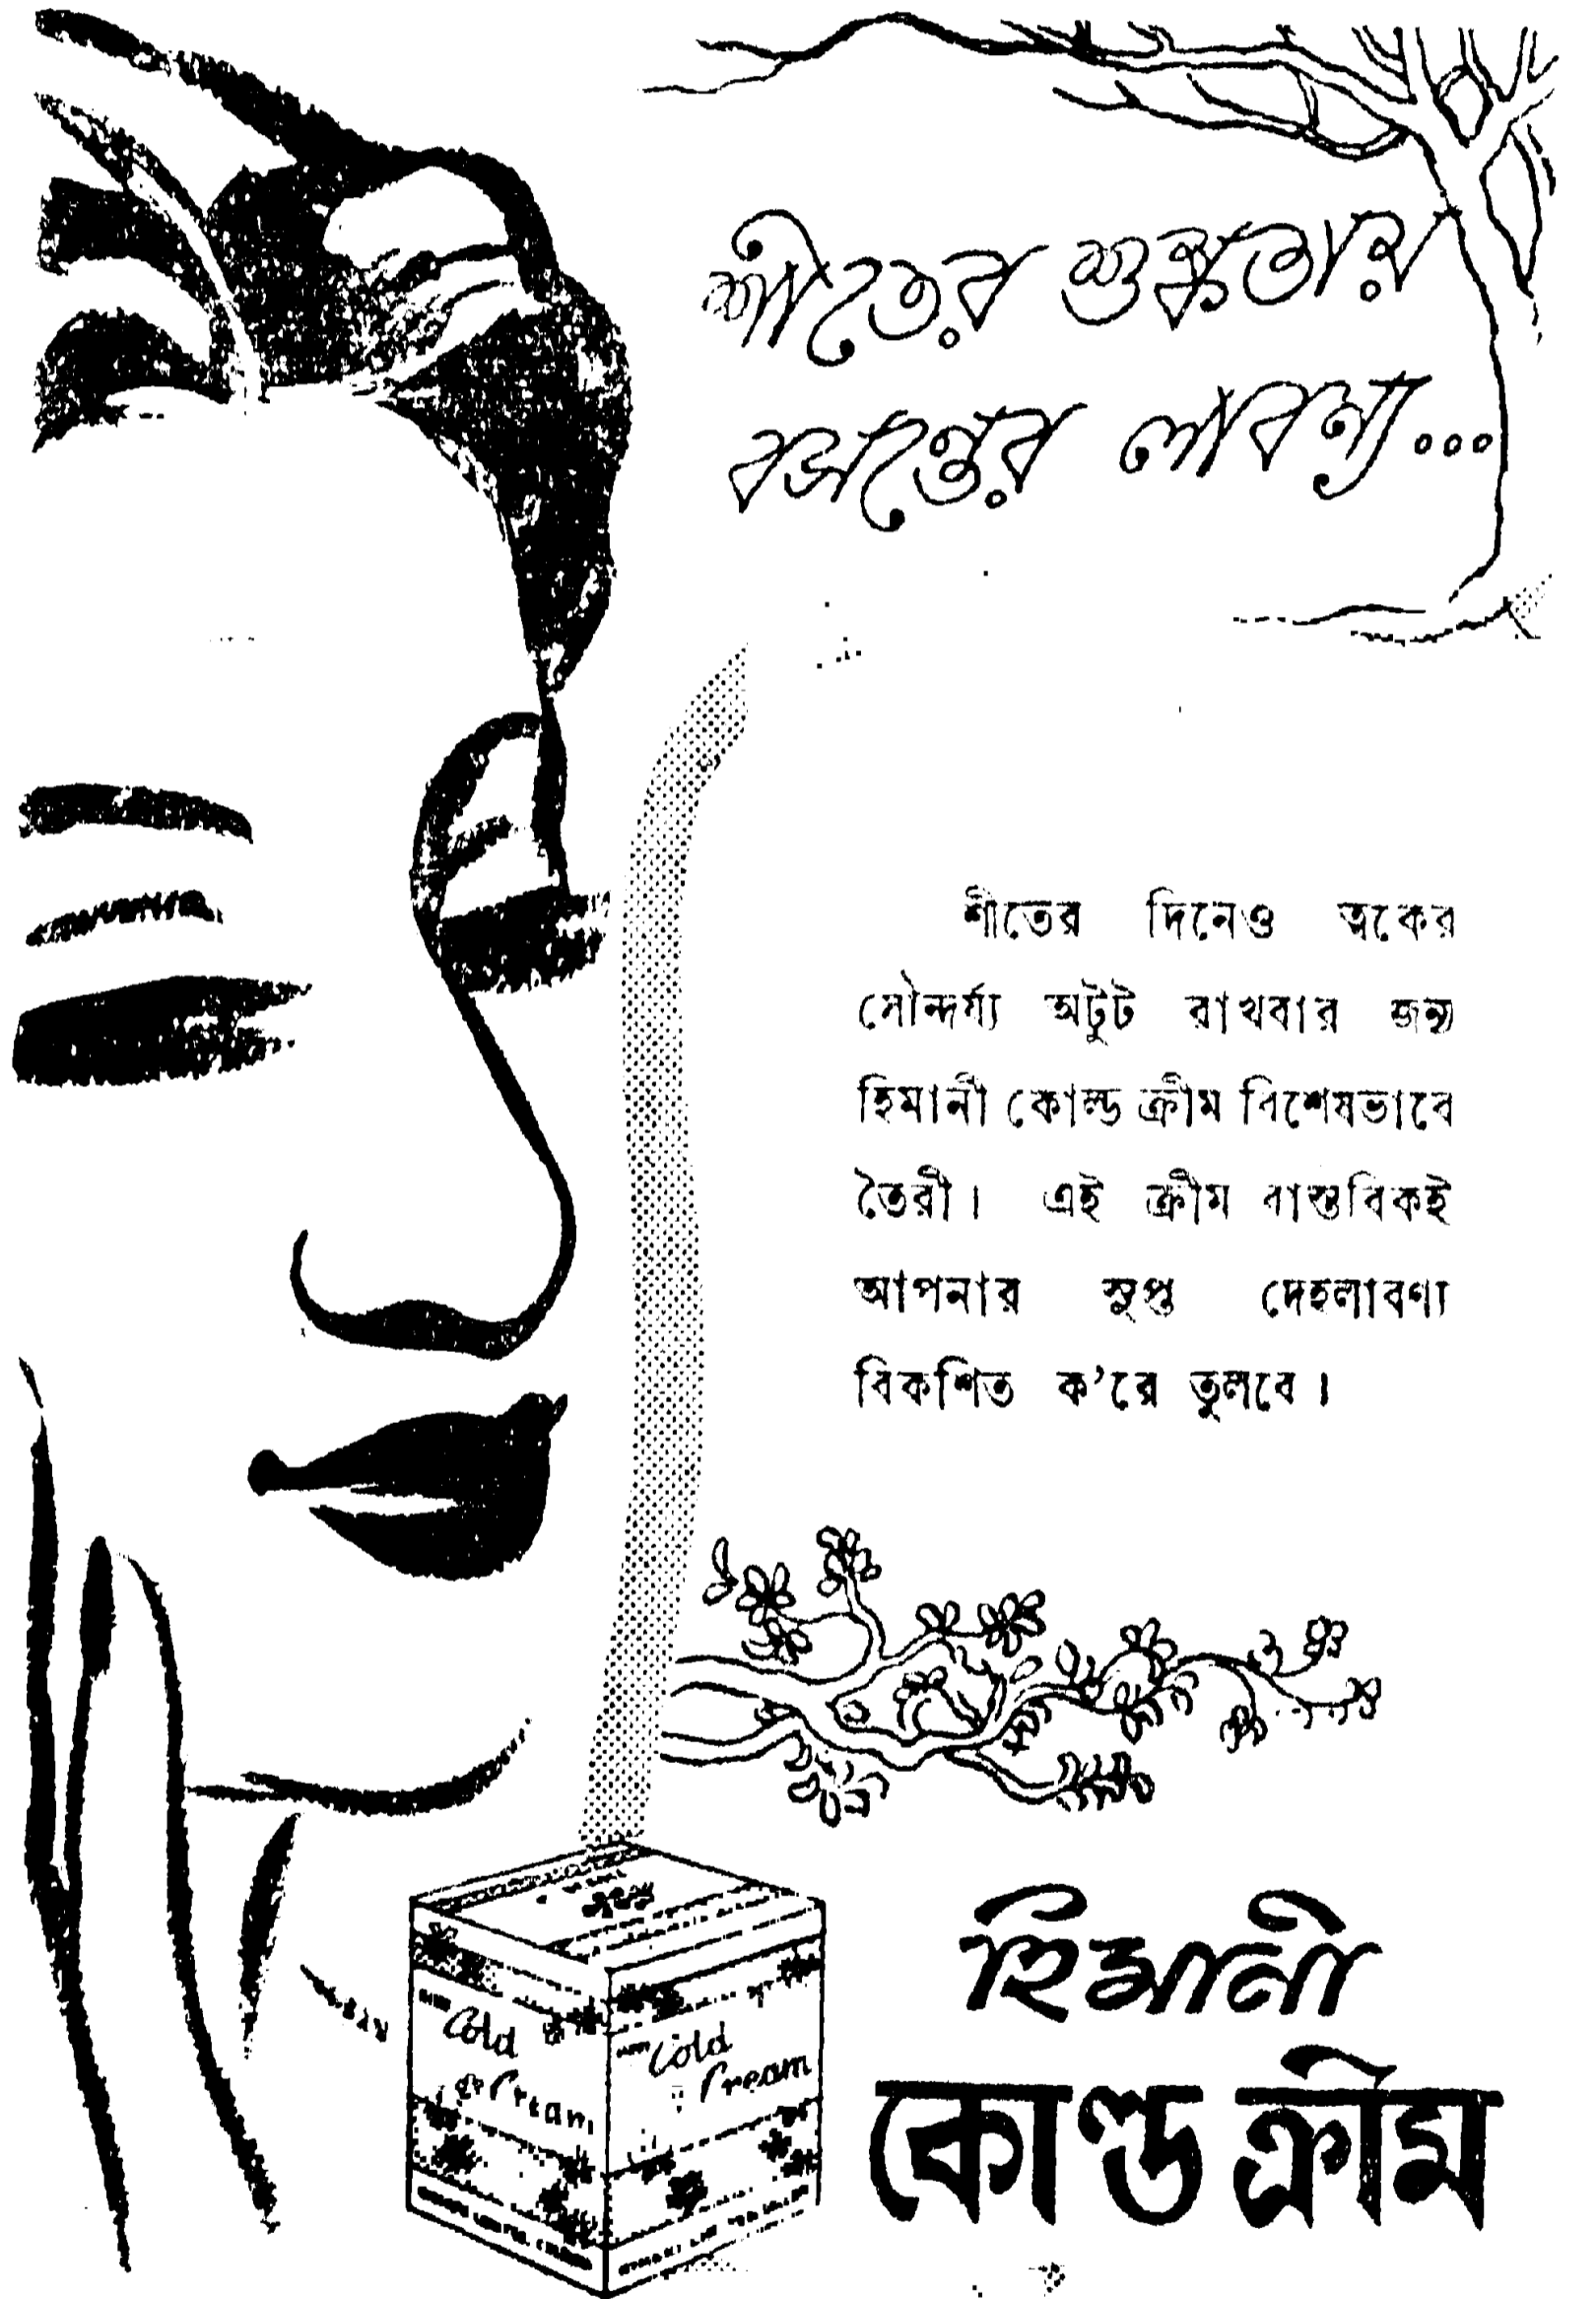 শীতের শুষ্কতায়
বসন্তের লাবন্য...
শীতের দিনেও ত্বকের
সৌন্দর্য্য অটুট রাখবার জন্য
হিমানী কোল্ড ক্রীম বিশেষভাবে
তৈরী। এই ক্রীম বাস্তবিকই
আপনার সুপ্ত দেহলাবণ্য
বিকশিত ক'রে তুলবে।
হিমানী
কোল্ড ক্রীম
Cold
Cream
Cold
Cream